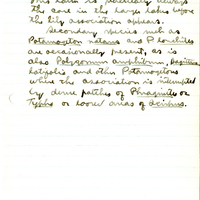 This latter is practically always
the case in the larger lakes before
the lily association appears.
Secondary species such as
Potamogeton natans and P. lonchites
are occasionally present, as is
also Polygonum amphibium, Sagittaria
latifolia and other Potamogetons
where the association is interrupted
by dense patches of Phragmites or
Typha or looser areas of Scirpus.